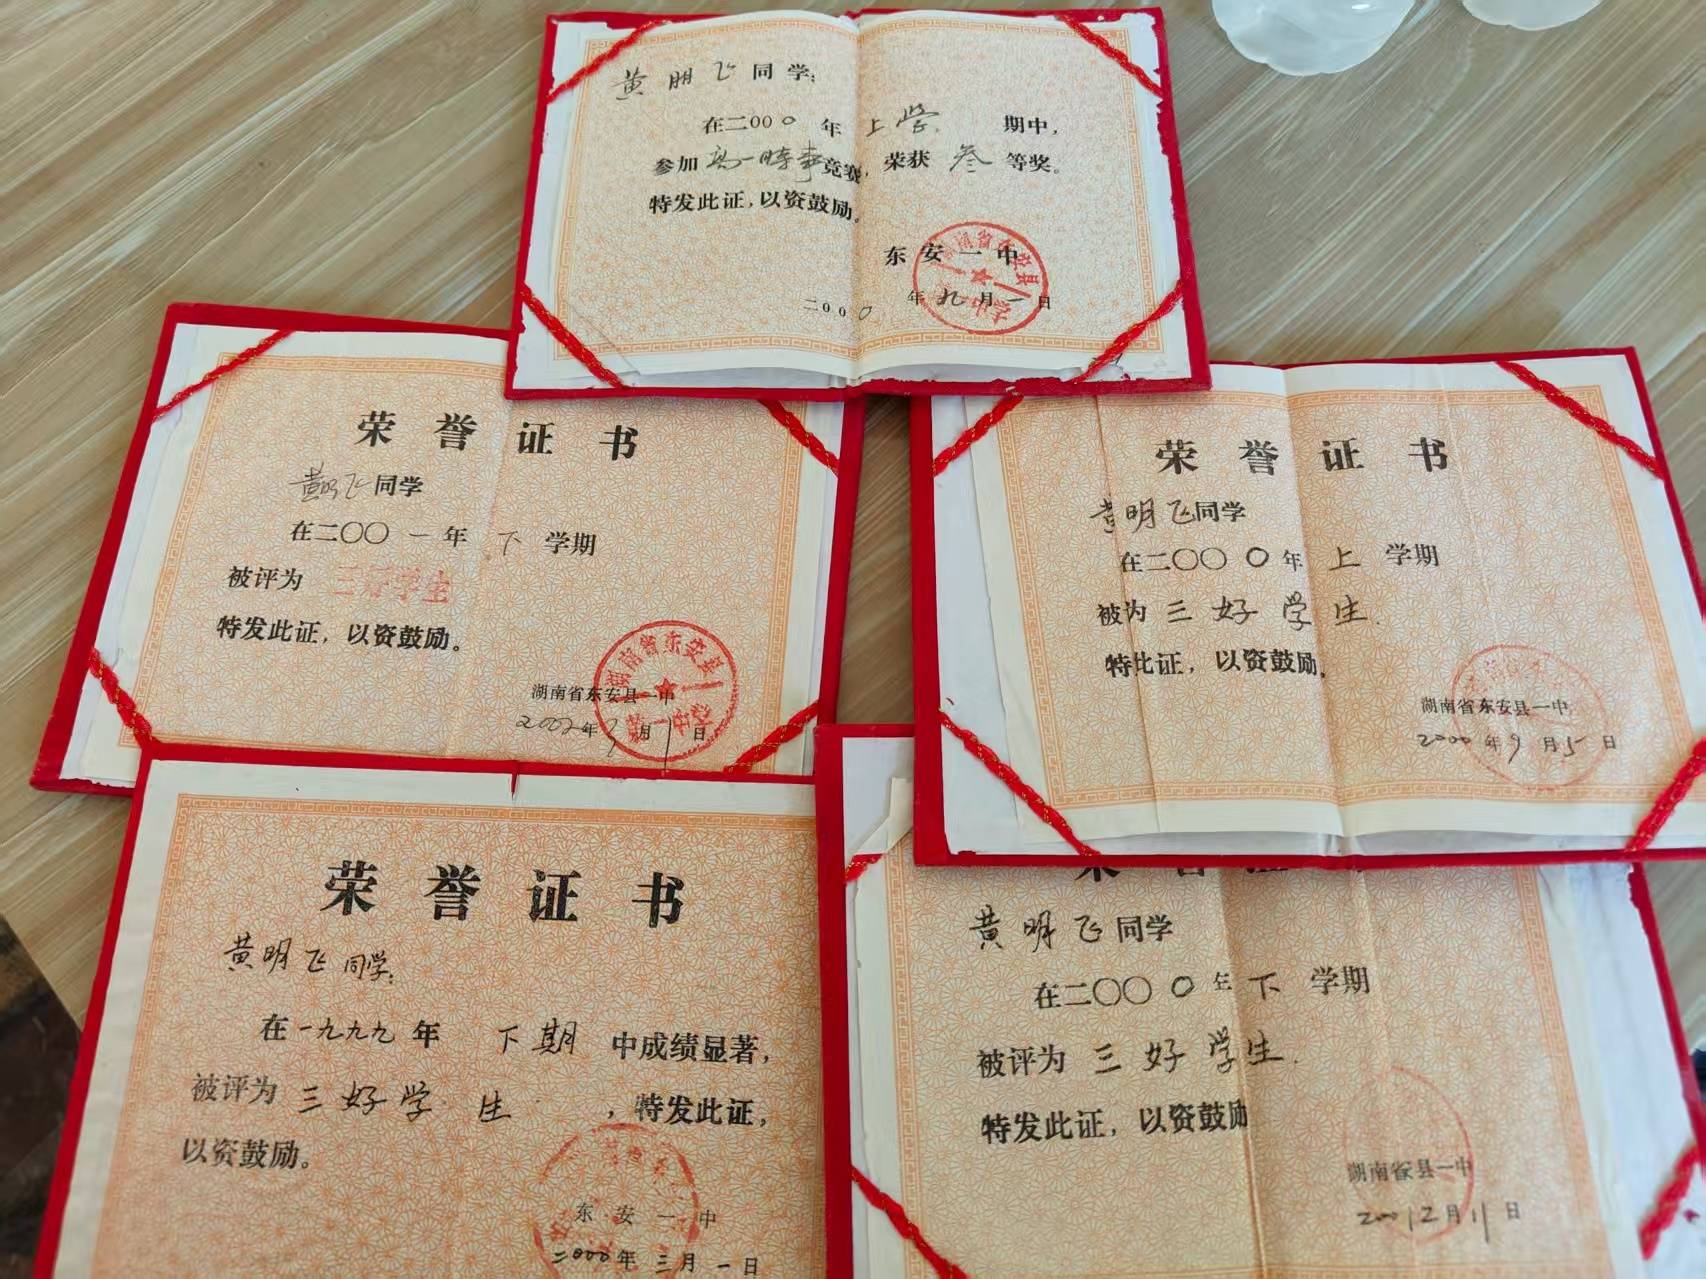 黄明飞同学：
在二000年上学期中，
参加高一时事竞赛，荣获叁等奖。
特发此证，以资鼓励。
东安一中
二000年九月一日
荣誉证书
黄明飞同学
在二〇〇一年下学期
被评为三好学生
特发此证，以资鼓励。
湖南省东安县一中
2002年 月1日
湖南省东安县第一中学校
荣誉证书
黄明飞同学
在二〇〇〇年上学期
被为三好学生
特比证，以资鼓励。
湖南省东安县一中
2000年9月5日
荣誉证书
黄明飞同学：
在一九九九年下期中成绩显著，
被评为三好学生，特发此证，
以资鼓励。
东安一中
二000年三月一日
黄明飞同学
在二〇〇〇年下学期
被评为三好学生
特发此证，以资鼓励
湖南省县一中
2001 2月11日